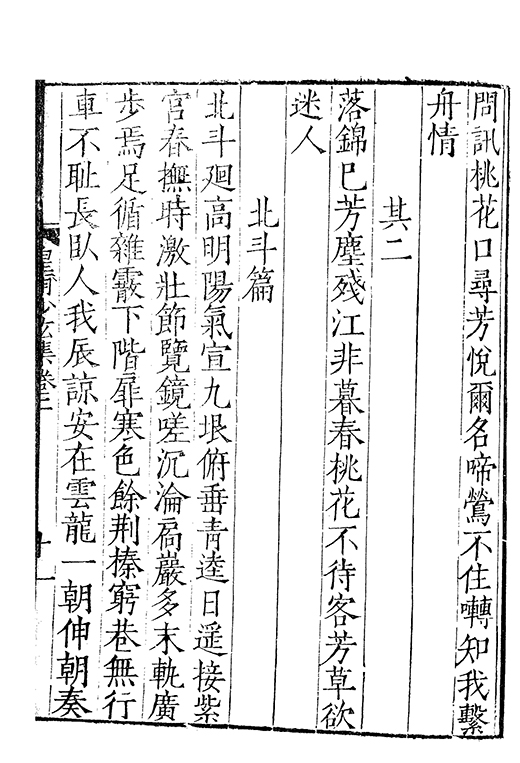 問訊桃花口尋芳悅爾名啼鶯不住囀知我繫
舟情
其二
落錦已芳塵殘江非暮春桃花不待客芳草欲
迷人
北斗篇
北斗廻高明陽氣宣九垠俯垂青逵日遥接紫
宮春撫時激壯節覽鏡嗟沉淪扄嚴多末軌廣
步焉足循雜霰下階扉寒色餘荆榛窮巷無行
車不耻長臥人我辰諒安在雲龍一朝伸朝奏
集卷二
十一